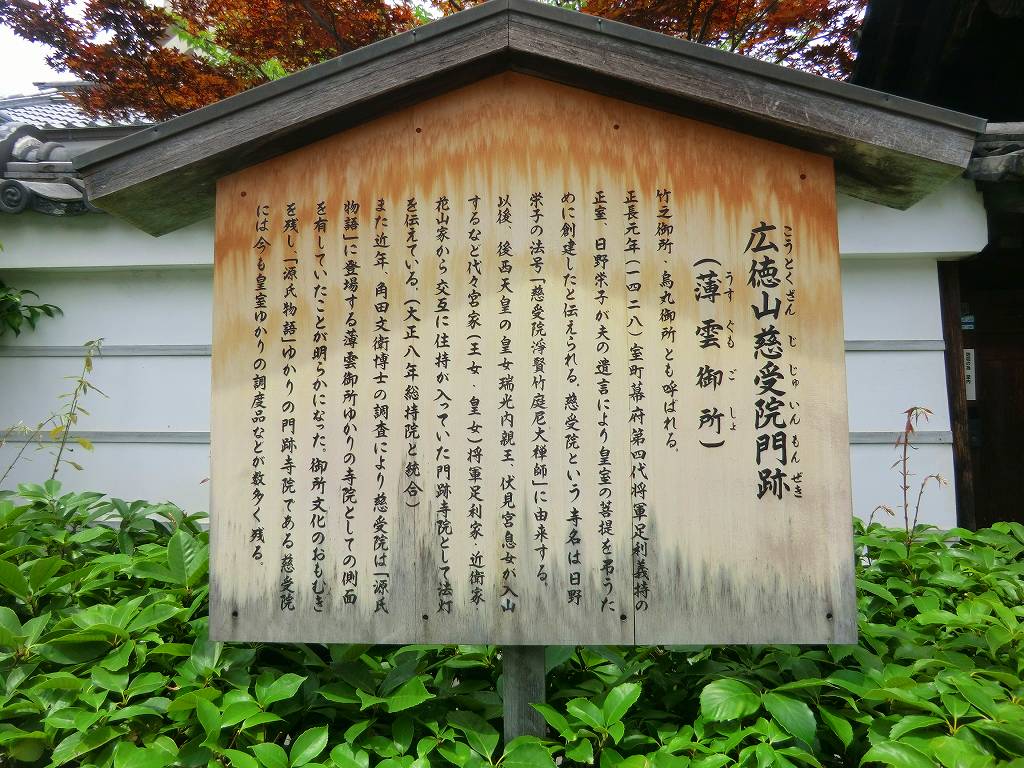 広徳山慈受院門跡
こうとくざん じじゅいんもんぜき
(薄雲御所)
うすぐもごしょ
竹之御所、烏丸御所とも呼ばれる。
正長元年(一四二八)室町幕府第四代将軍足利義持の
正室、日野栄子が夫の遺言により皇室の菩提を弔うた
めに創建したと伝えられる。慈受院という寺名は日野
栄子の法号「慈受院浄賢竹庭尼大禅師」に由来する。
以後、後西天皇の皇女瑞光内親王、伏見宮息女が入山
するなど代々宮家(王女・皇女)将軍足利家・近衛家
花山家から交互に住持が入っていた門跡寺院として法灯
を伝えている。(大正八年総持院と統合)
また近年、角田文衛博士の調査により慈受院は「源氏
物語」に登場する薄雲御所ゆかりの寺院としての側面
を有していたことが明らかになった。御所文化のおもむき
を残し「源氏物語」ゆかりの門跡寺院である慈受院
には今も皇室ゆかりの調度品などが数多く残る。